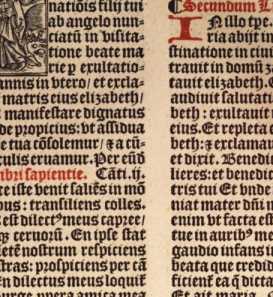 natiõis filij tui
ab angelo nun-
ciatũ in visita-
tione beate ma
rie p exultatio-
annis in vtero/ et excla-
matris eius elizabeth/
manifestare dignatus
de propicius: vt assidua
e tua cõsolemur/ & a cũ-
culis eruamur. Per eũd
bri sapientie. Cãti.ij.
te iste venit saliẽs in mõ
ous: transiliens colles.
est dilectꝰ meus capree/
ceruorũ. En ipse stat
etẽ nostrum respiciens
stras: prospiciens per cã
En dilectus meus loquit
urge opera amica mea
Secundum L
IN illo tpe.
ria abijt in
stinatione in ciui
trauit in domũ za
tauit elizabeth. E
audiuit salutati
beth: exultauit i
eius. Et repleta
beth: & exclamaui
et dixit. Benedi
lieres: et benedict
tris tui Et vnde
niat mater dñi m
enim vt facta est
tue in auribꝰ me
gaudio infans i
beata que credid
ficient ea q̃ dicta
Et ait maria